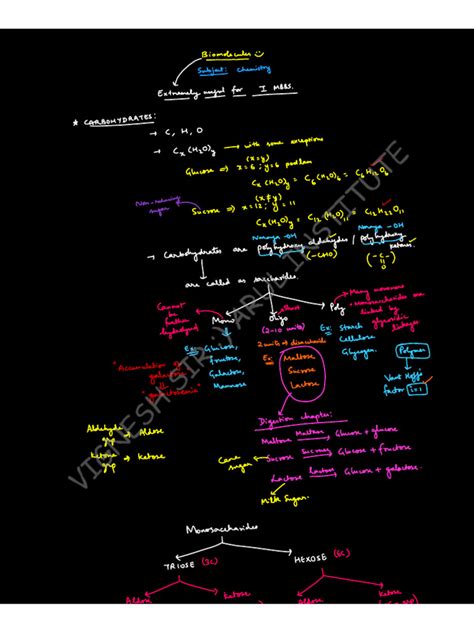 Biomolecules
Subject: Chemistry
Extremely useful for I MBBS.
* CARBOHYDRATES:
→ C, H, O
→ Cx(H2O)y → with some exceptions
(x=y)
Glucose ⇒ x=6; y=6 problem
Cx(H2O)y = C6(H2O)6 = C6H12O6
Non-reducing sugar
(x≠y)
Sucrose ⇒ x=12; y=11
Cx(H2O)y = C12(H2O)11 = C12H22O11
→ Carbohydrates are polyhydroxy aldehydes / polyhydroxy ketones.
(-CHO)
are called as saccharides.
Cannot be further hydrolysed
Mono
Oligo
(2-10 units)
2 units → disaccharide
Poly
Many monomers
• Monosaccharides are linked by glycosidic linkage
Ex: Glucose,
fructose,
Galactose,
Mannose
Ex: Maltose
Sucrose
Lactose
Ex: Starch
Cellulose
Glycogen.
Polymer
Vant Hoff's factor i=1
"Accumulation of galactose
Aldehyde grp → Aldose
Ketone grp → Ketose
Digestion chapter:
Maltose Maltase → Glucose + glucose
Cane sugar
Sucrose Sucrase → Glucose + fructose
Lactose Lactase → Glucose + galactose.
Milk Sugar.
Monosaccharides
TRIOSE (3C)
HEXOSE (6C)
Aldose
Ketose
Aldose
Ketose
VIGNESH SIR
INSTITUTE